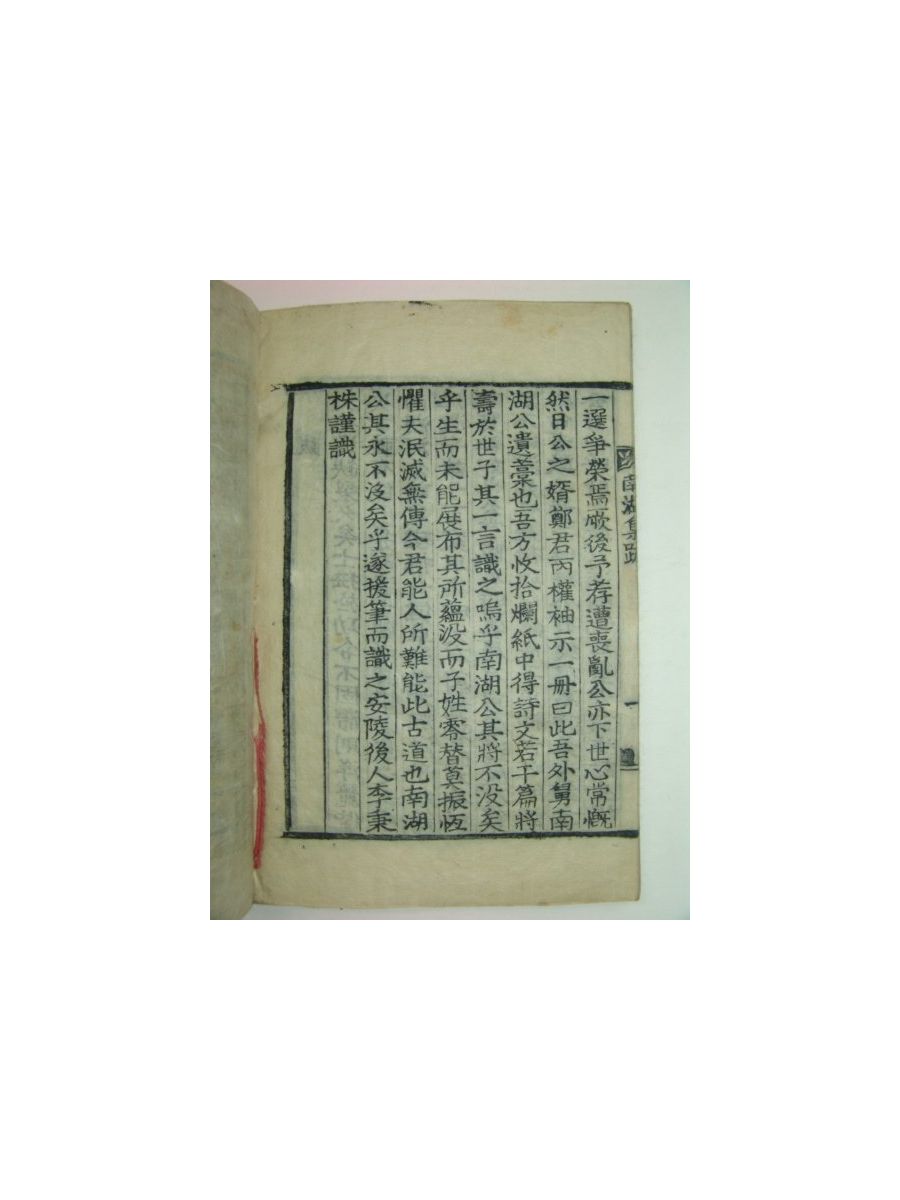 南湖集跋
一
一選爭榮焉厥後予荐遭喪亂公亦下世心常慨
然日公之婿鄭君丙權袖示一冊曰此吾外舅南
湖公遺藁也吾方收拾爛紙中得詩文若干篇將
壽於世子其一言識之嗚乎南湖公其將不没矣
乎生而未能展布其所蘊没而子姓零替莫振恆
懼夫泯滅無傳今君能人所難能此古道也南湖
公其永不没矣乎遂援筆而識之安陵後人李秉
株謹識